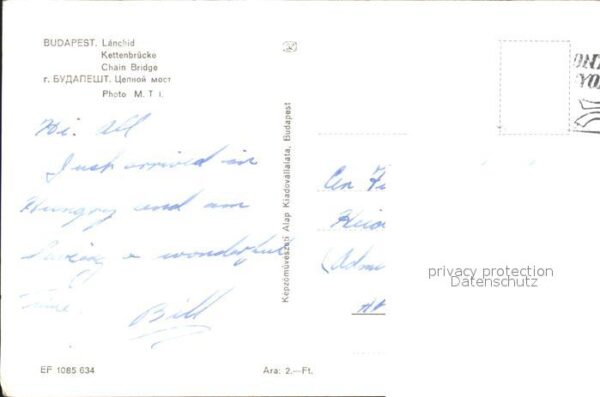 BUDAPEST. Lánchid
Kettenbrücke
Chain Bridge
г. БУДАПЕШТ. Цепной мост
Photo M. T I.
Hi. All
Just arrived in
Hungry and am
having a wonderful
Time.
Bill
EF 1085 634
Ara: 2.—Ft.
Képzőművészeti Alap Kiadóvállalata, Budapest
privacy protection
Datenschutz